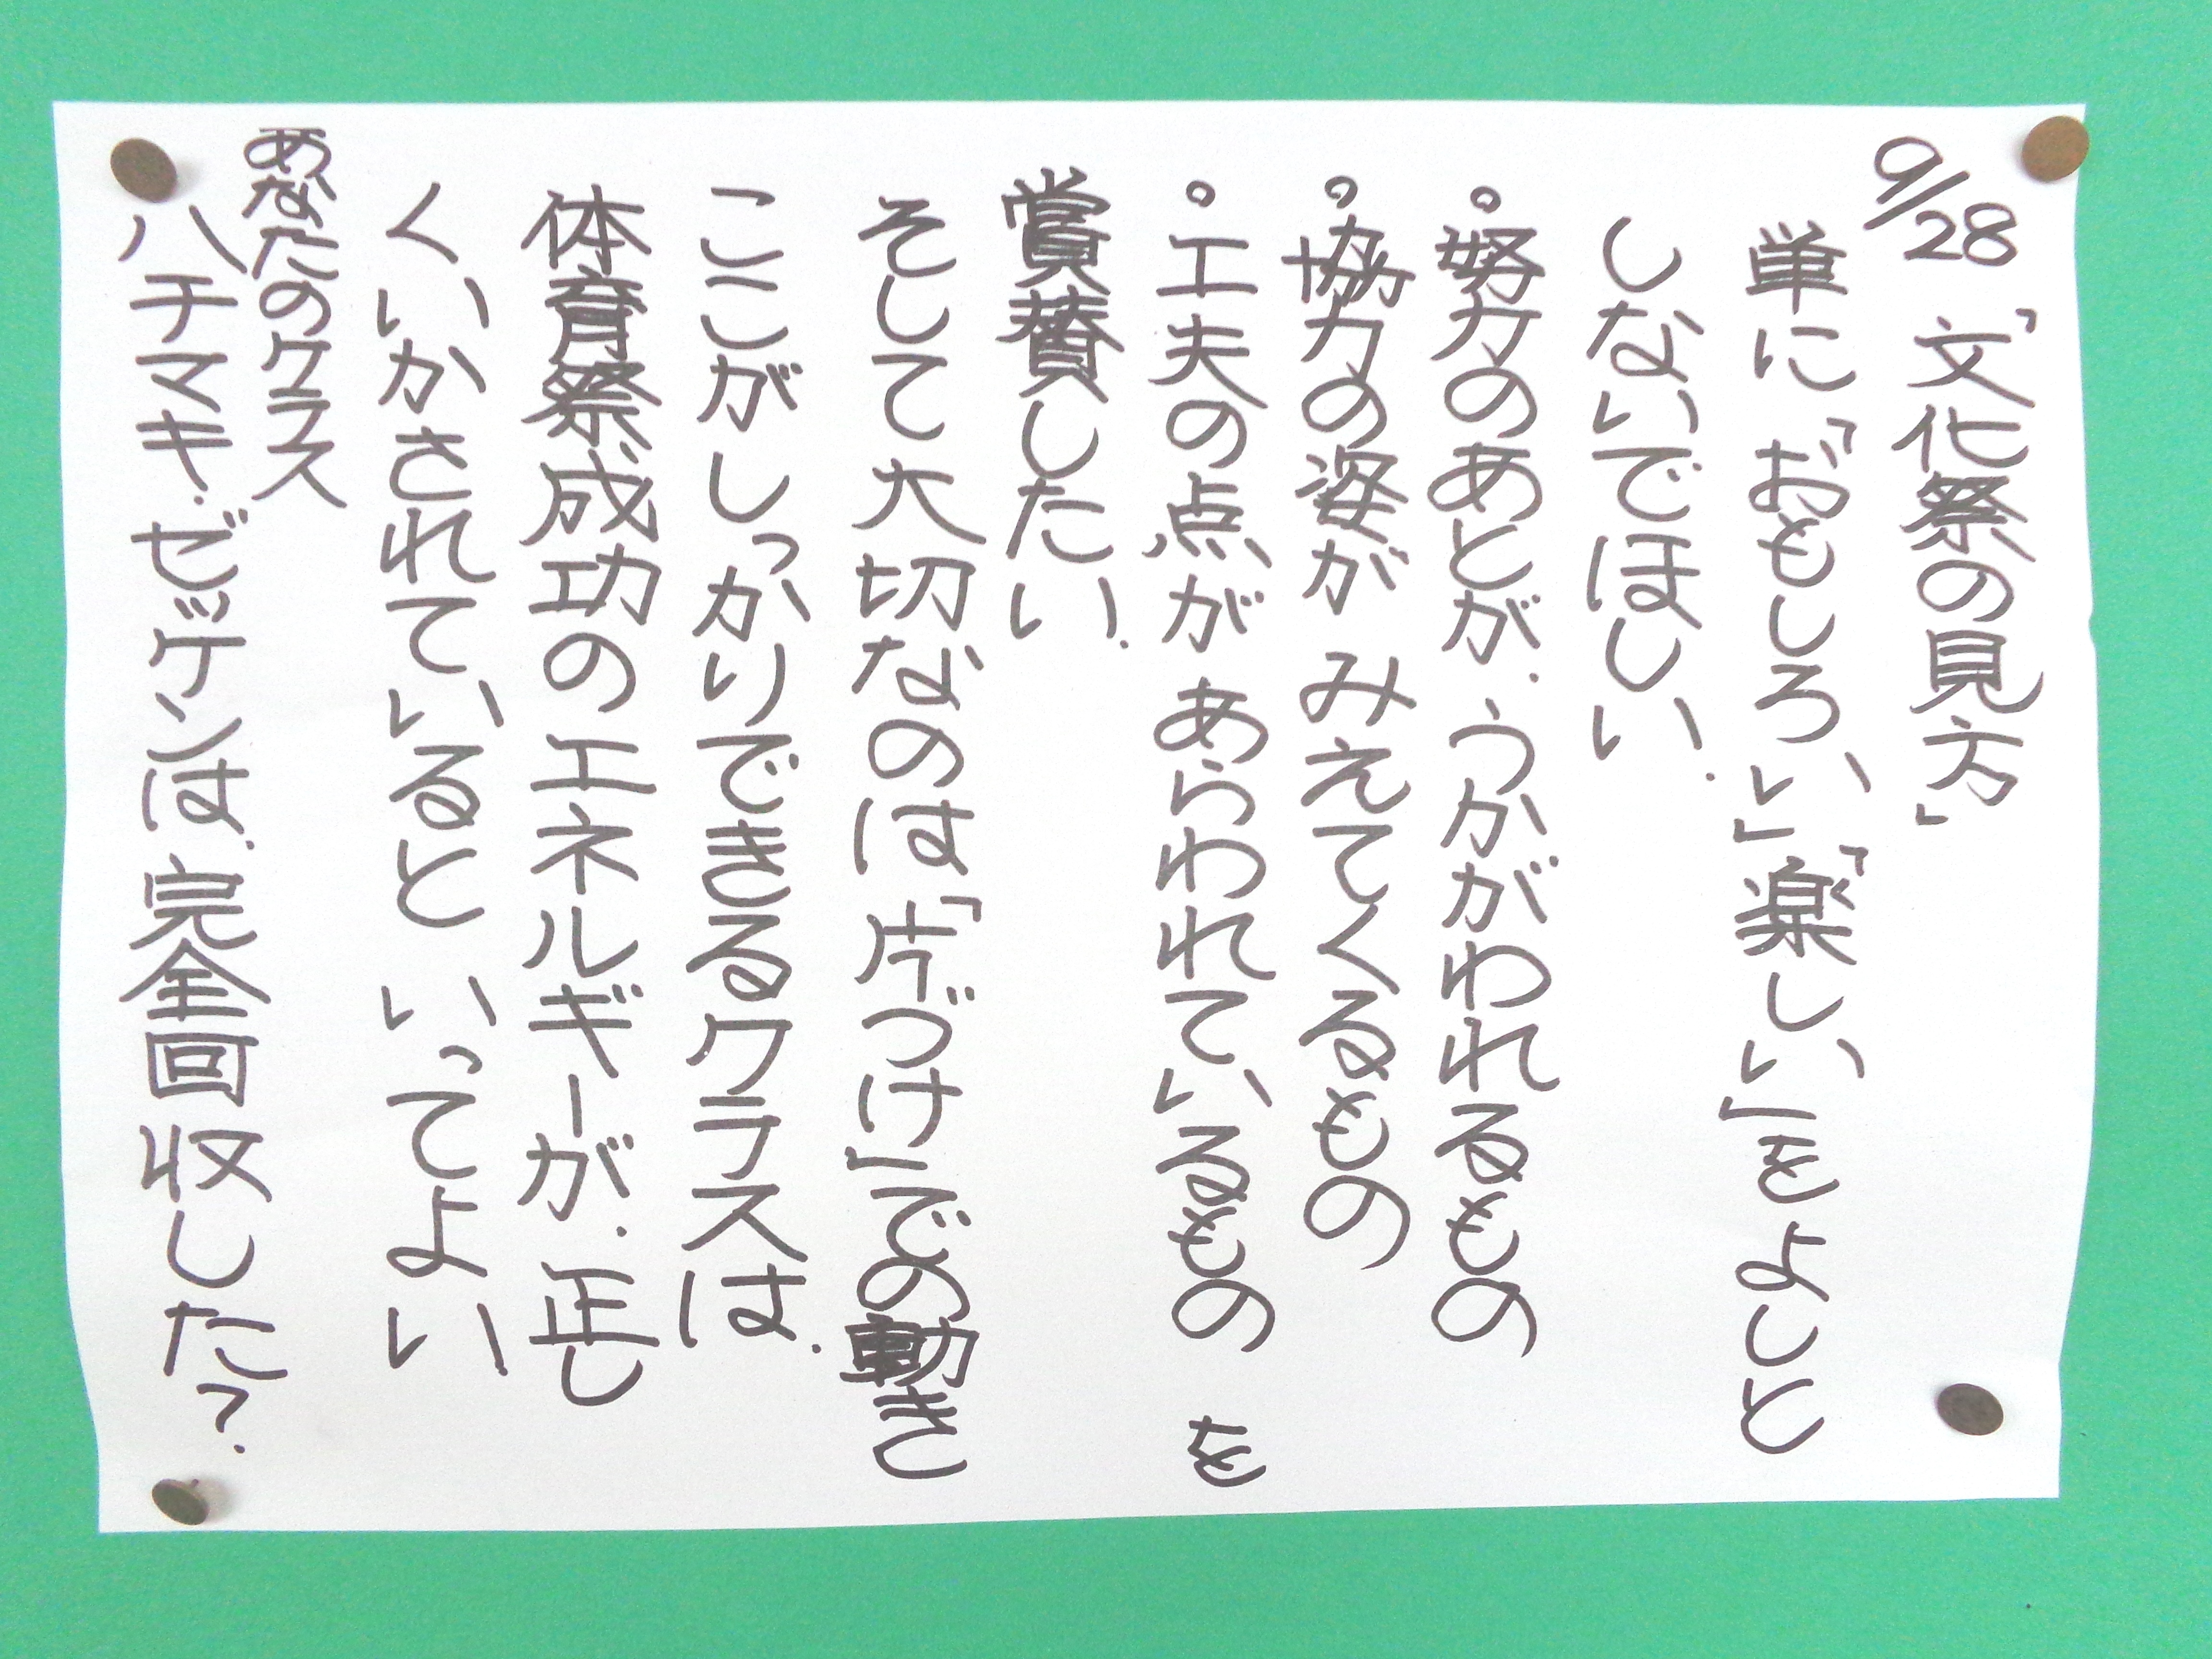 9/28「文化祭の見方」
単に「おもしろい」「楽しい」をよしと
しないでほしい.
。努力のあとが.うかがわれるもの
。協力の姿が みえてくるもの
。工夫の点が あらわれているもの を
賞賛したい.
そして大切なのは「片づけ」での動き
ここがしっかりできるクラスは.
体育祭成功のエネルギーが.正し
くいかされていると いってよい
あなたのクラス
ハチマキ.ゼッケンは.完全回収した?